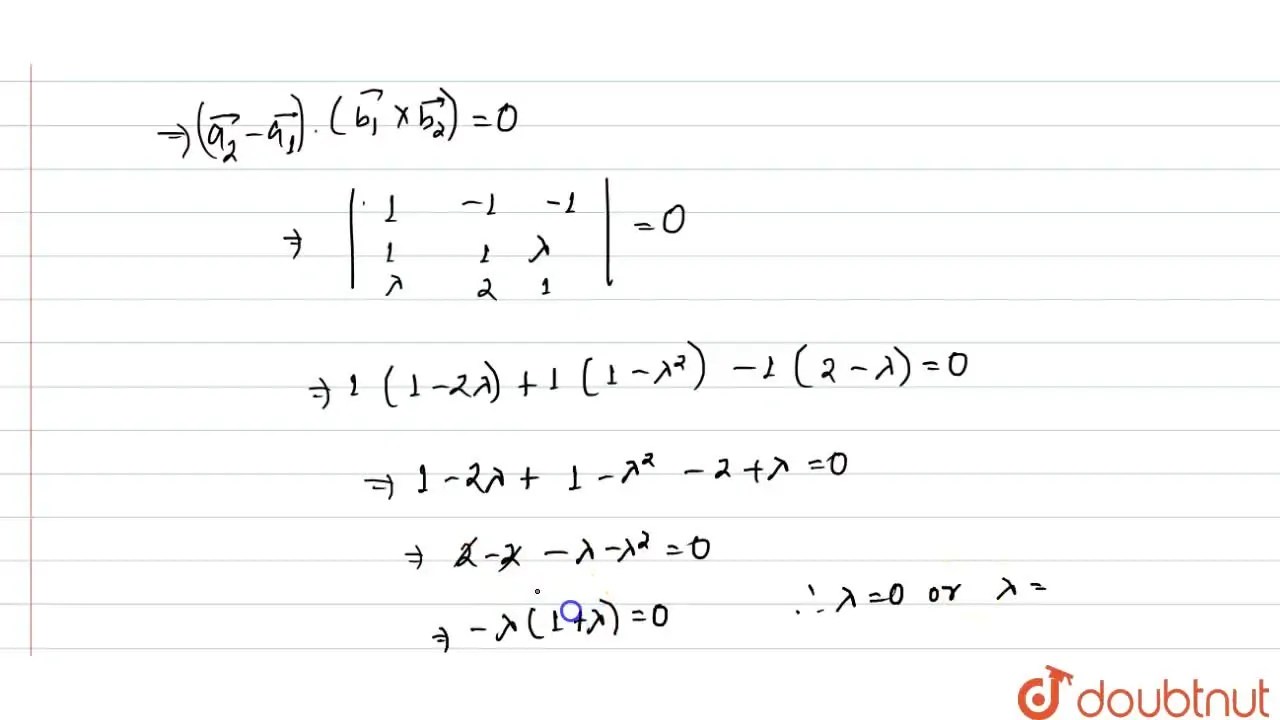 ⇒ (a₂⃗ − a₁⃗) · (b₁⃗ × b₂⃗) = 0
⇒ | 1 −1 −1 | = 0
| 1 1 λ |
| λ 2 1 |
⇒ 1 (1 − 2λ) + 1 (1 − λ²) − 1 (2 − λ) = 0
⇒ 1 − 2λ + 1 − λ² − 2 + λ = 0
⇒ 2 − 2 − λ − λ² = 0
⇒ − λ (1 + λ) = 0 ∴ λ = 0 or λ =
doubtnut